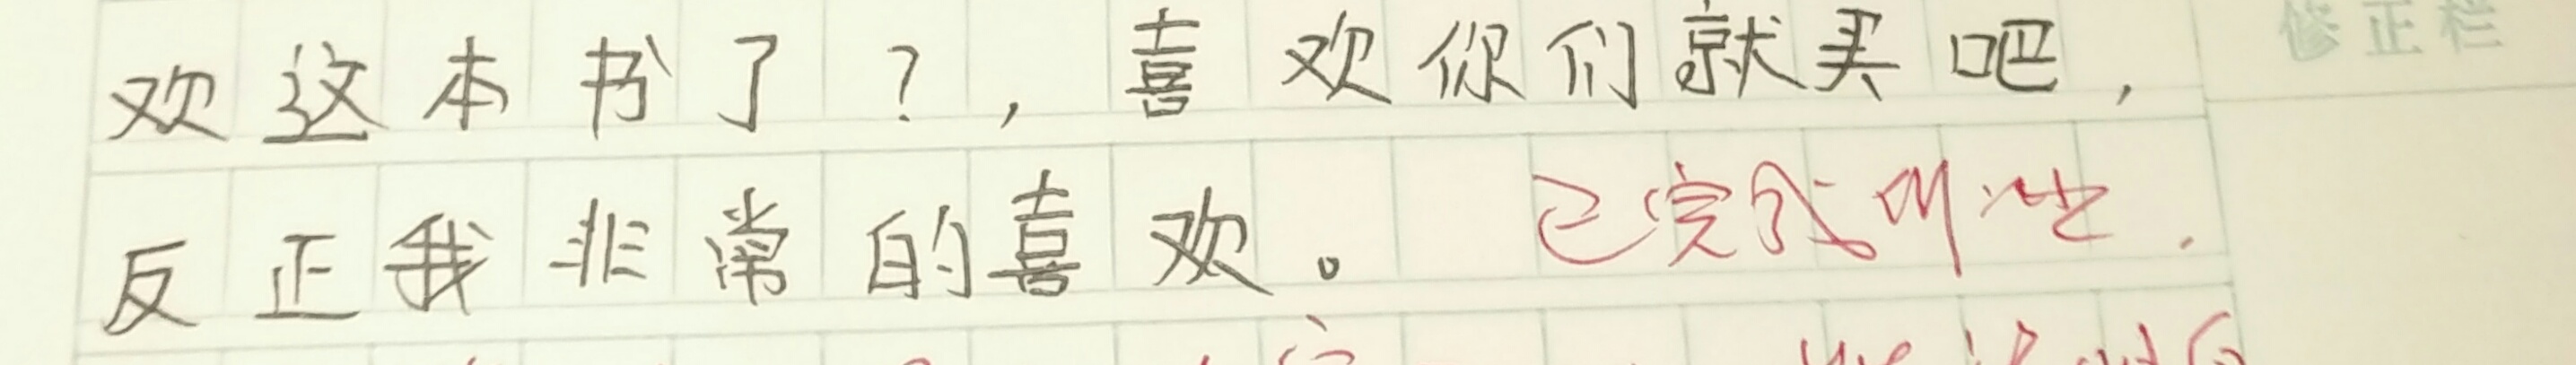 欢这本书了?,喜欢你们就买吧, 修正栏
反正我非常的喜欢。 已完成